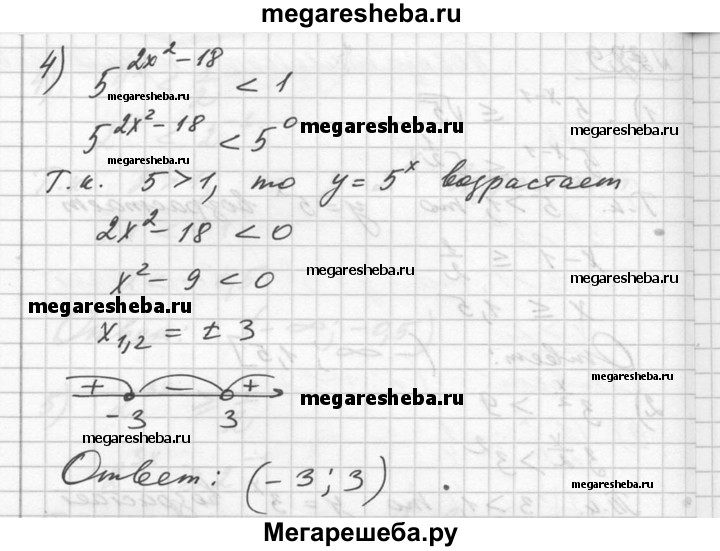 megaresheba.ru
4) 5^{2x²-18} < 1
megaresheba.ru
5^{2x²-18} < 5⁰ megaresheba.ru
megaresheba.ru
megaresheba.ru
Т.к. 5 > 1, то y = 5ˣ возрастает
2x² - 18 < 0
x² - 9 < 0 megaresheba.ru
megaresheba.ru
megaresheba.ru
x₁,₂ = ± 3
+ - +
megaresheba.ru
megaresheba.ru
-3 3
megaresheba.ru
Ответ: (-3; 3).
megaresheba.ru
Мегарешеба.ру